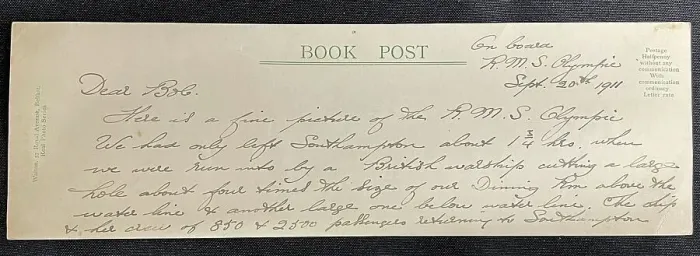 BOOK POST
On board
R.M.S. Olympic
Sept. 20th 1911
Postage
Halfpenny
without any
communication
With
communication
ordinary
Letter rate
Dear Bob.
Here is a fine picture of the R.M.S. Olympic
We had only left Southampton about 1 3/4 hrs. when
we were run into by a British warship cutting a large
hole about four times the size of our Dining Rm above the
water line & another large one below water line. The ship
& her crew of 850 & 2500 passengers returning to Southampton
Royal Avenue, Belfast.
Real Photo Series